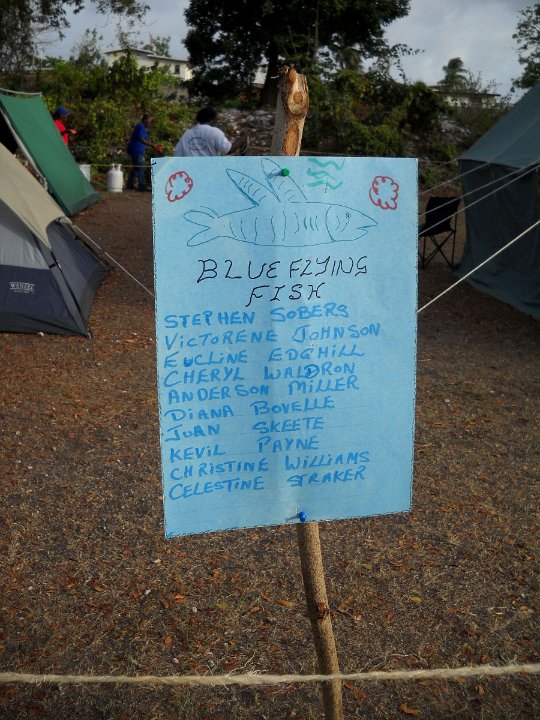 BLUE FLYING
FISH
STEPHEN SOBERS
VICTORENE JOHNSON
EUCLINE EDGHILL
CHERYL WALDRON
ANDERSON MILLER
DIANA BOVELLE
JUAN SKEETE
KEVIL PAYNE
CHRISTINE WILLIAMS
CELESTINE STRAKER
WENZEL